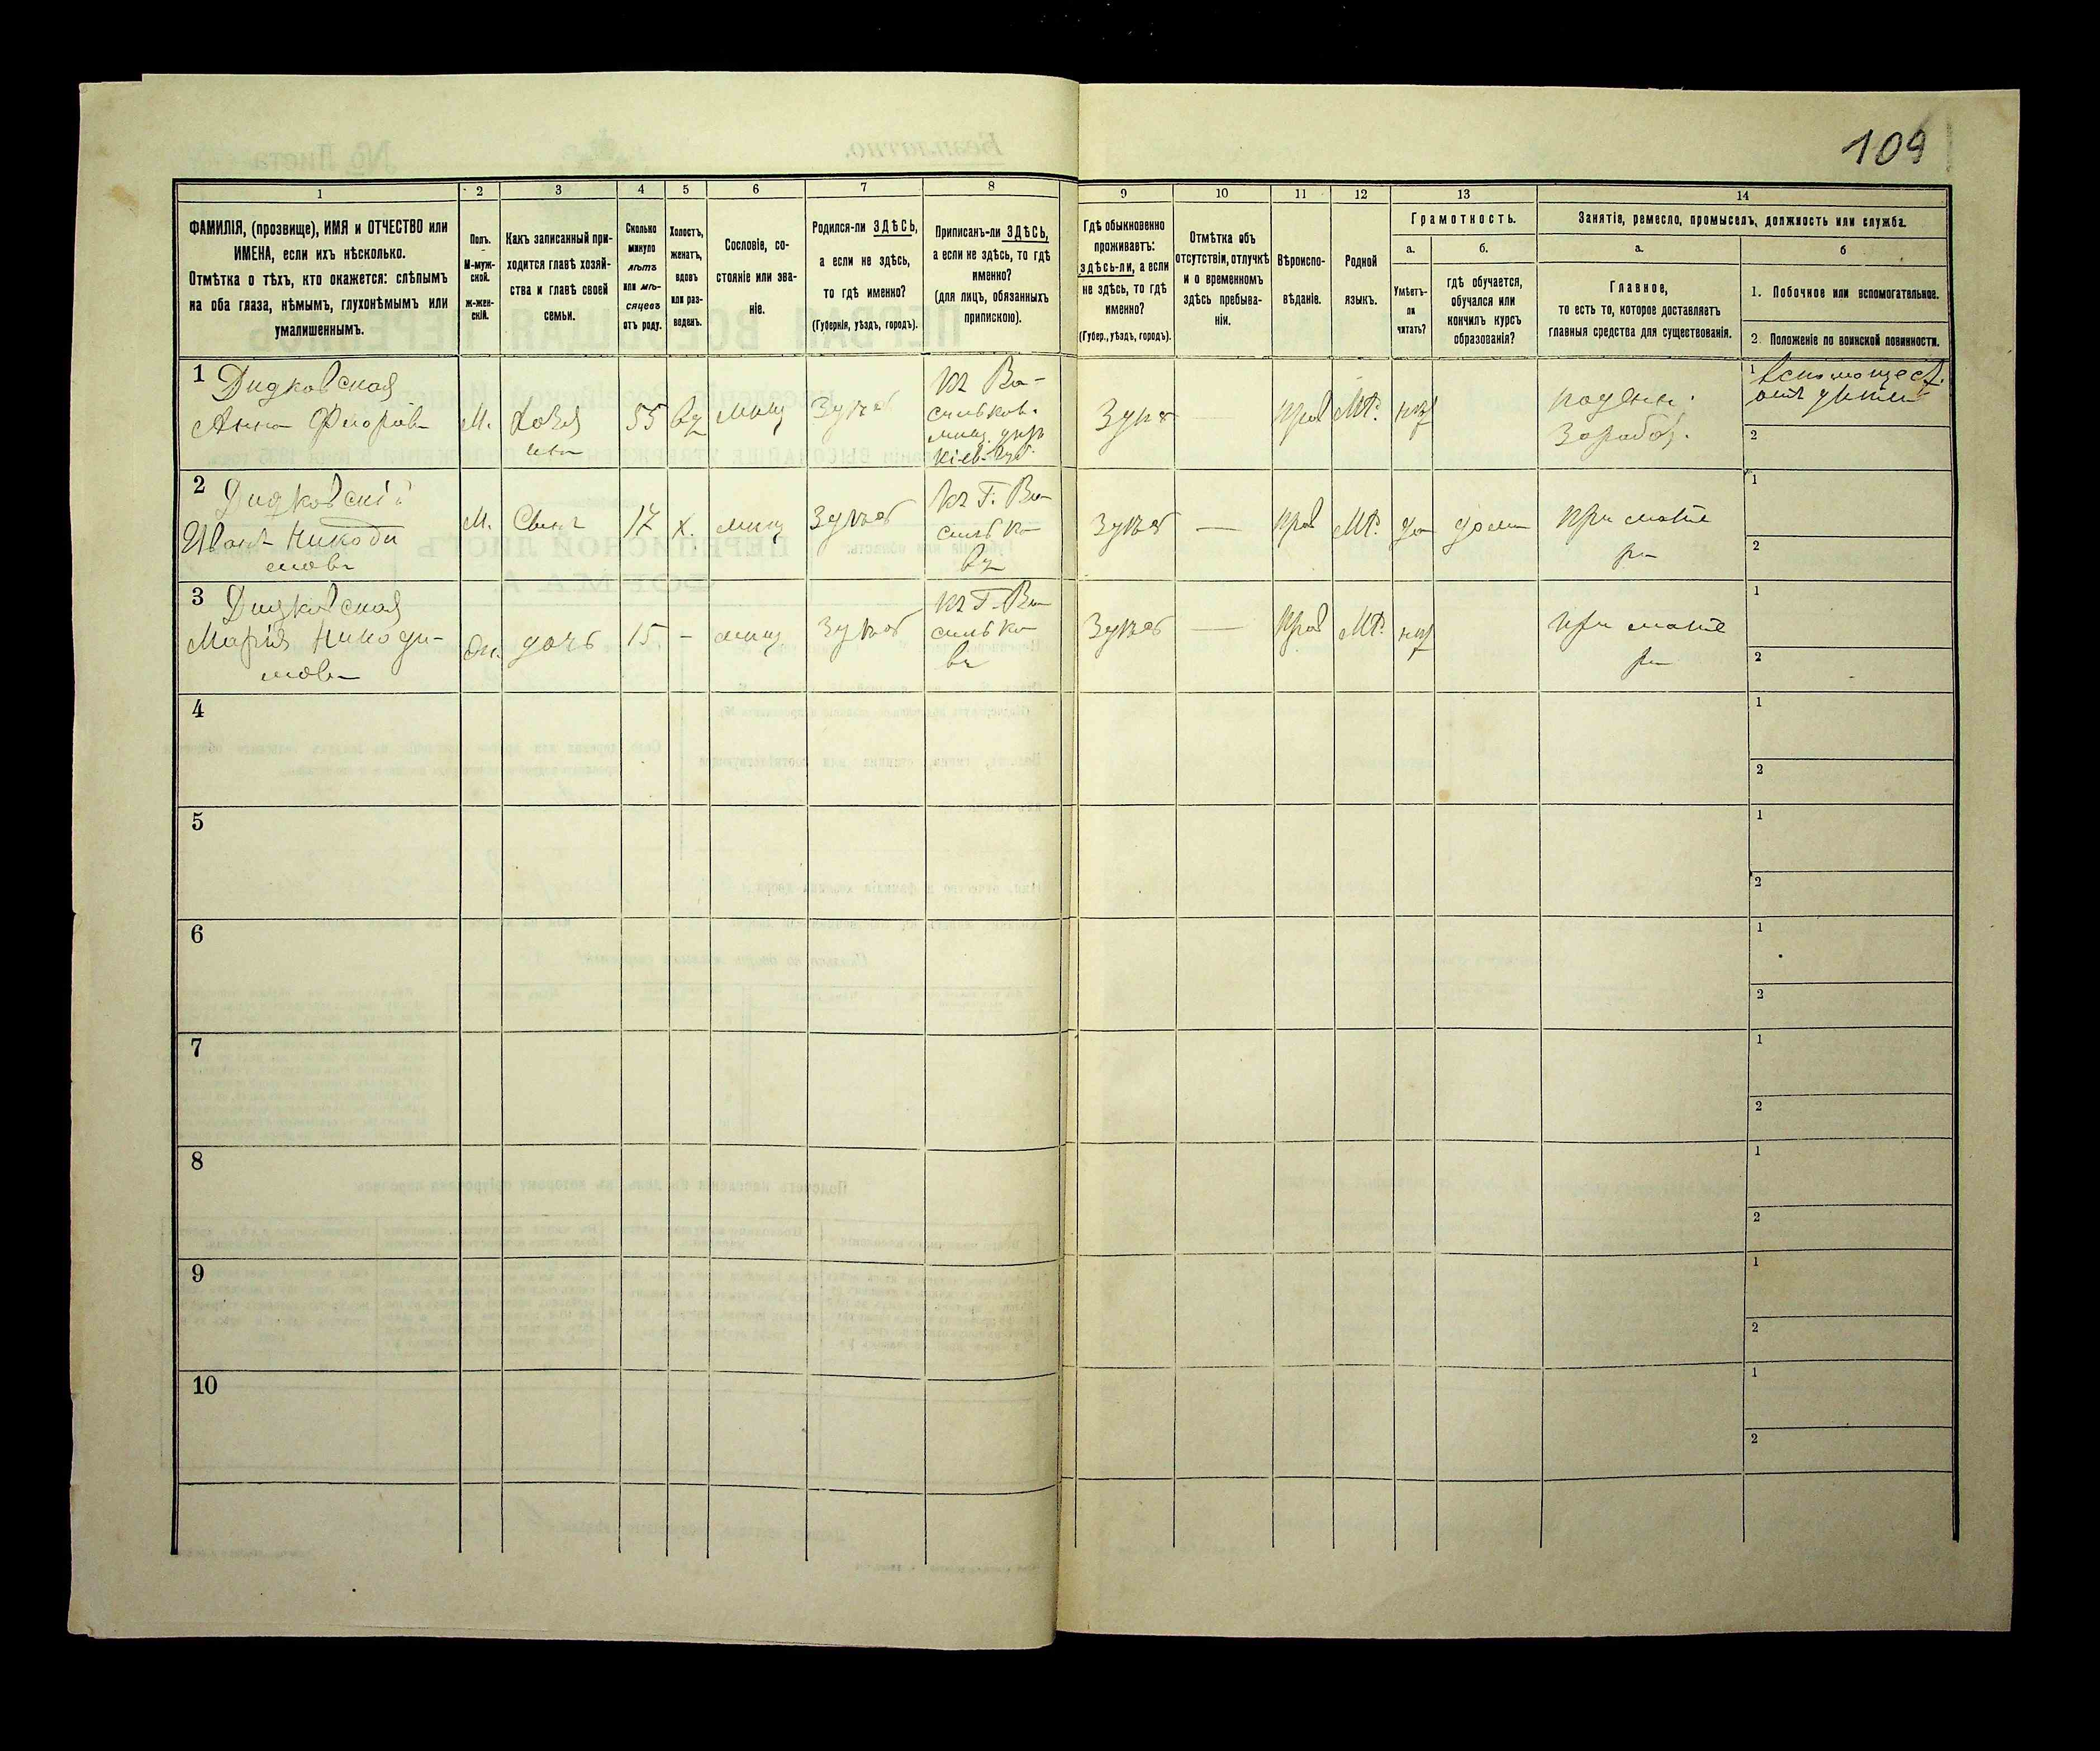 109
1
2
3
4
5
6
7
8
9
10
11
12
13
14
ФАМИЛІЯ, (прозвище), ИМЯ и ОТЧЕСТВО или
ИМЕНА, если ихъ нѣсколько.
Отмѣтка о тѣхъ, кто окажется: слѣпымъ
на оба глаза, нѣмымъ, глухонѣмымъ или
умалишеннымъ.
Полъ.
М-муж-
ской.
ж-жен-
скій.
Какъ записанный при-
ходится главѣ хозяй-
ства и главѣ своей
семьи.
Сколько
минуло
лѣтъ
или мѣ-
сяцевъ
отъ роду.
Холостъ,
женатъ,
вдовъ
или раз-
веденъ.
Сословіе, со-
стояніе или зва-
ніе.
Родился-ли ЗДѢСЬ,
а если не здѣсь,
то гдѣ именно?
(Губернія, уѣздъ, городъ).
Приписанъ-ли ЗДѢСЬ,
а если не здѣсь, то гдѣ
именно?
(для лицъ, обязанныхъ
припискою).
Гдѣ обыкновенно
проживаетъ:
здѣсь-ли, а если
не здѣсь, то гдѣ
именно?
(Губер., уѣздъ, городъ).
Отмѣтка объ
отсутствіи, отлучкѣ
и о временномъ
здѣсь пребыва-
ніи.
Вѣроиспо-
вѣданіе.
Родной
языкъ.
Грамотность.
а.
Умѣетъ-
ли
читать?
б.
гдѣ обучается,
обучался или
кончилъ курсъ
образованія?
Занятіе, ремесло, промыселъ, должность или служба.
а.
Главное,
то есть то, которое доставляетъ
главныя средства для существованія.
б
1. Побочное или вспомогательное.
2. Положеніе по воинской повинности.
1
Дидковская
Анна Фіодоров
М.
Хозя
55
вд
мищ
Здѣсь
къ Ва-
сильков.
мищ. упр
Кіев. Губ.
Здѣсь
прав
МР.
нѣт
поденн.
заработ.
1
2
2
Дидковскій
Иванъ Никоди
мовъ
М.
Сынъ
17
х.
мищ
Здѣсь
къ Г. Ва
силько
въ
Здѣсь
—
прав
МР.
да
дома
при мате
ри
1
2
3
Дидковская
Марія Никоди-
мовн
дочь
15.
-
мищ
Здѣсь
къ Г. Ва
силько
въ
Здѣсь
—
прав
МР.
нѣт
при мате
ри
1
2
4
1
2
5
1
2
6
1
2
7
1
2
8
1
2
9
1
2
10
1
2